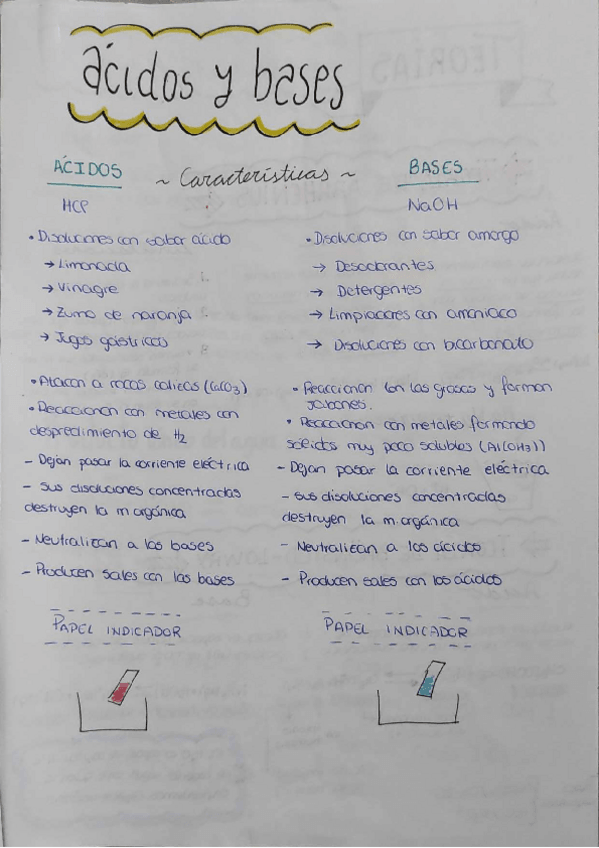 ácidos y bases
ÁCIDOS
~ Características ~
BASES
HCl
NaOH
• Disoluciones con sabor ácido
→ Limonada
→ Vinagre
→ Zumo de naranja
→ Jugos gástricos
• Atacan a rocas calicas (CaCO3)
• Reaccionan con metales con
despredimiento de H2
- Dejan pasar la corriente eléctrica
- Sus disoluciones concentradas
destruyen la m.orgánica
- Neutralizan a las bases
- Producen sales con las bases
PAPEL INDICADOR
• Disoluciones con sabor amargo
→ Desatorantes
→ Detergentes
→ Limpiadores con amoniaco
→ Disoluciones con bicarbonato
• Reaccionan con las grasas y forman
jabones.
• Reaccionan con metales formando
sólidos muy poco solubles (Al(OH)3)
- Dejan pasar la corriente eléctrica
- sus disoluciones concentradas
destruyen la m.orgánica
- Neutralizan a los ácidos
- Producen sales con los ácidos
PAPEL INDICADOR